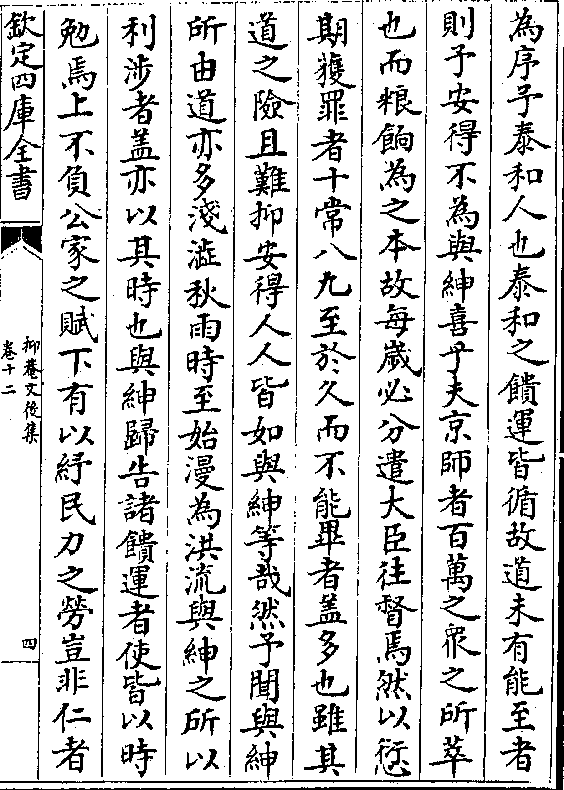 為序予泰和人也泰和之饋運皆循故道未有能至者
則予安得不為與紳喜乎夫京師者百萬之衆之所萃
也而粮餉為之本故每歲必分遣大臣往督焉然以愆
期獲罪者十常八九至於久而不能畢者盖多也雖其
道之險且難抑安得人人皆如與紳等哉然予聞與紳
所由道亦多淺澁秋雨時至始漫為洪流與紳之所以
利涉者盖亦以其時也與紳歸告諸饋運者使皆以時
勉焉上不負公家之賦下有以紓民力之勞豈非仁者
欽定四庫全書
抑菴文後集
卷十二
四